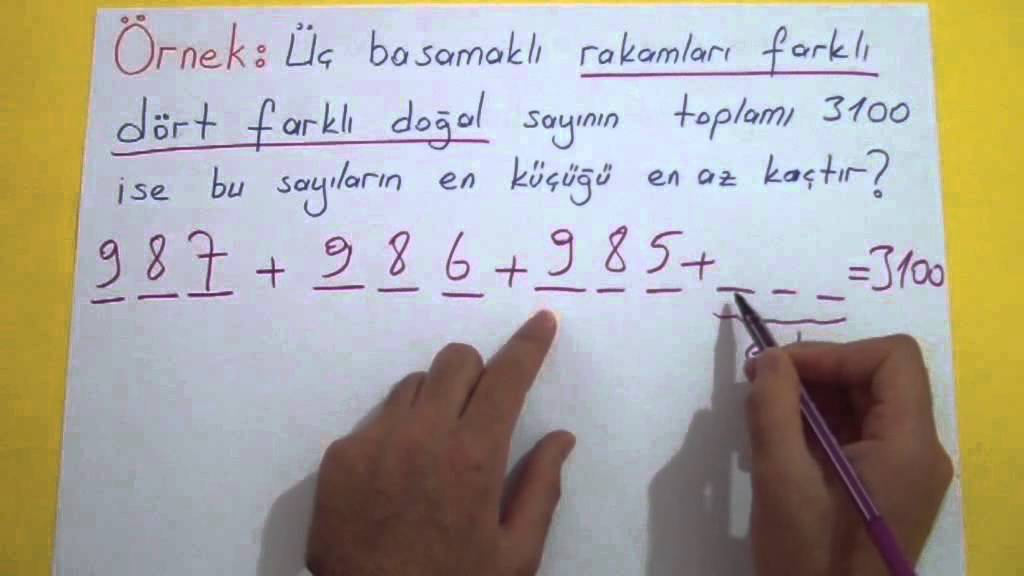 Örnek: Üç basamaklı rakamları farklı
dört farklı doğal sayının toplamı 3100
ise bu sayıların en küçüğü en az kaçtır?
987 + 986 + 985 + _ _ _ = 3100